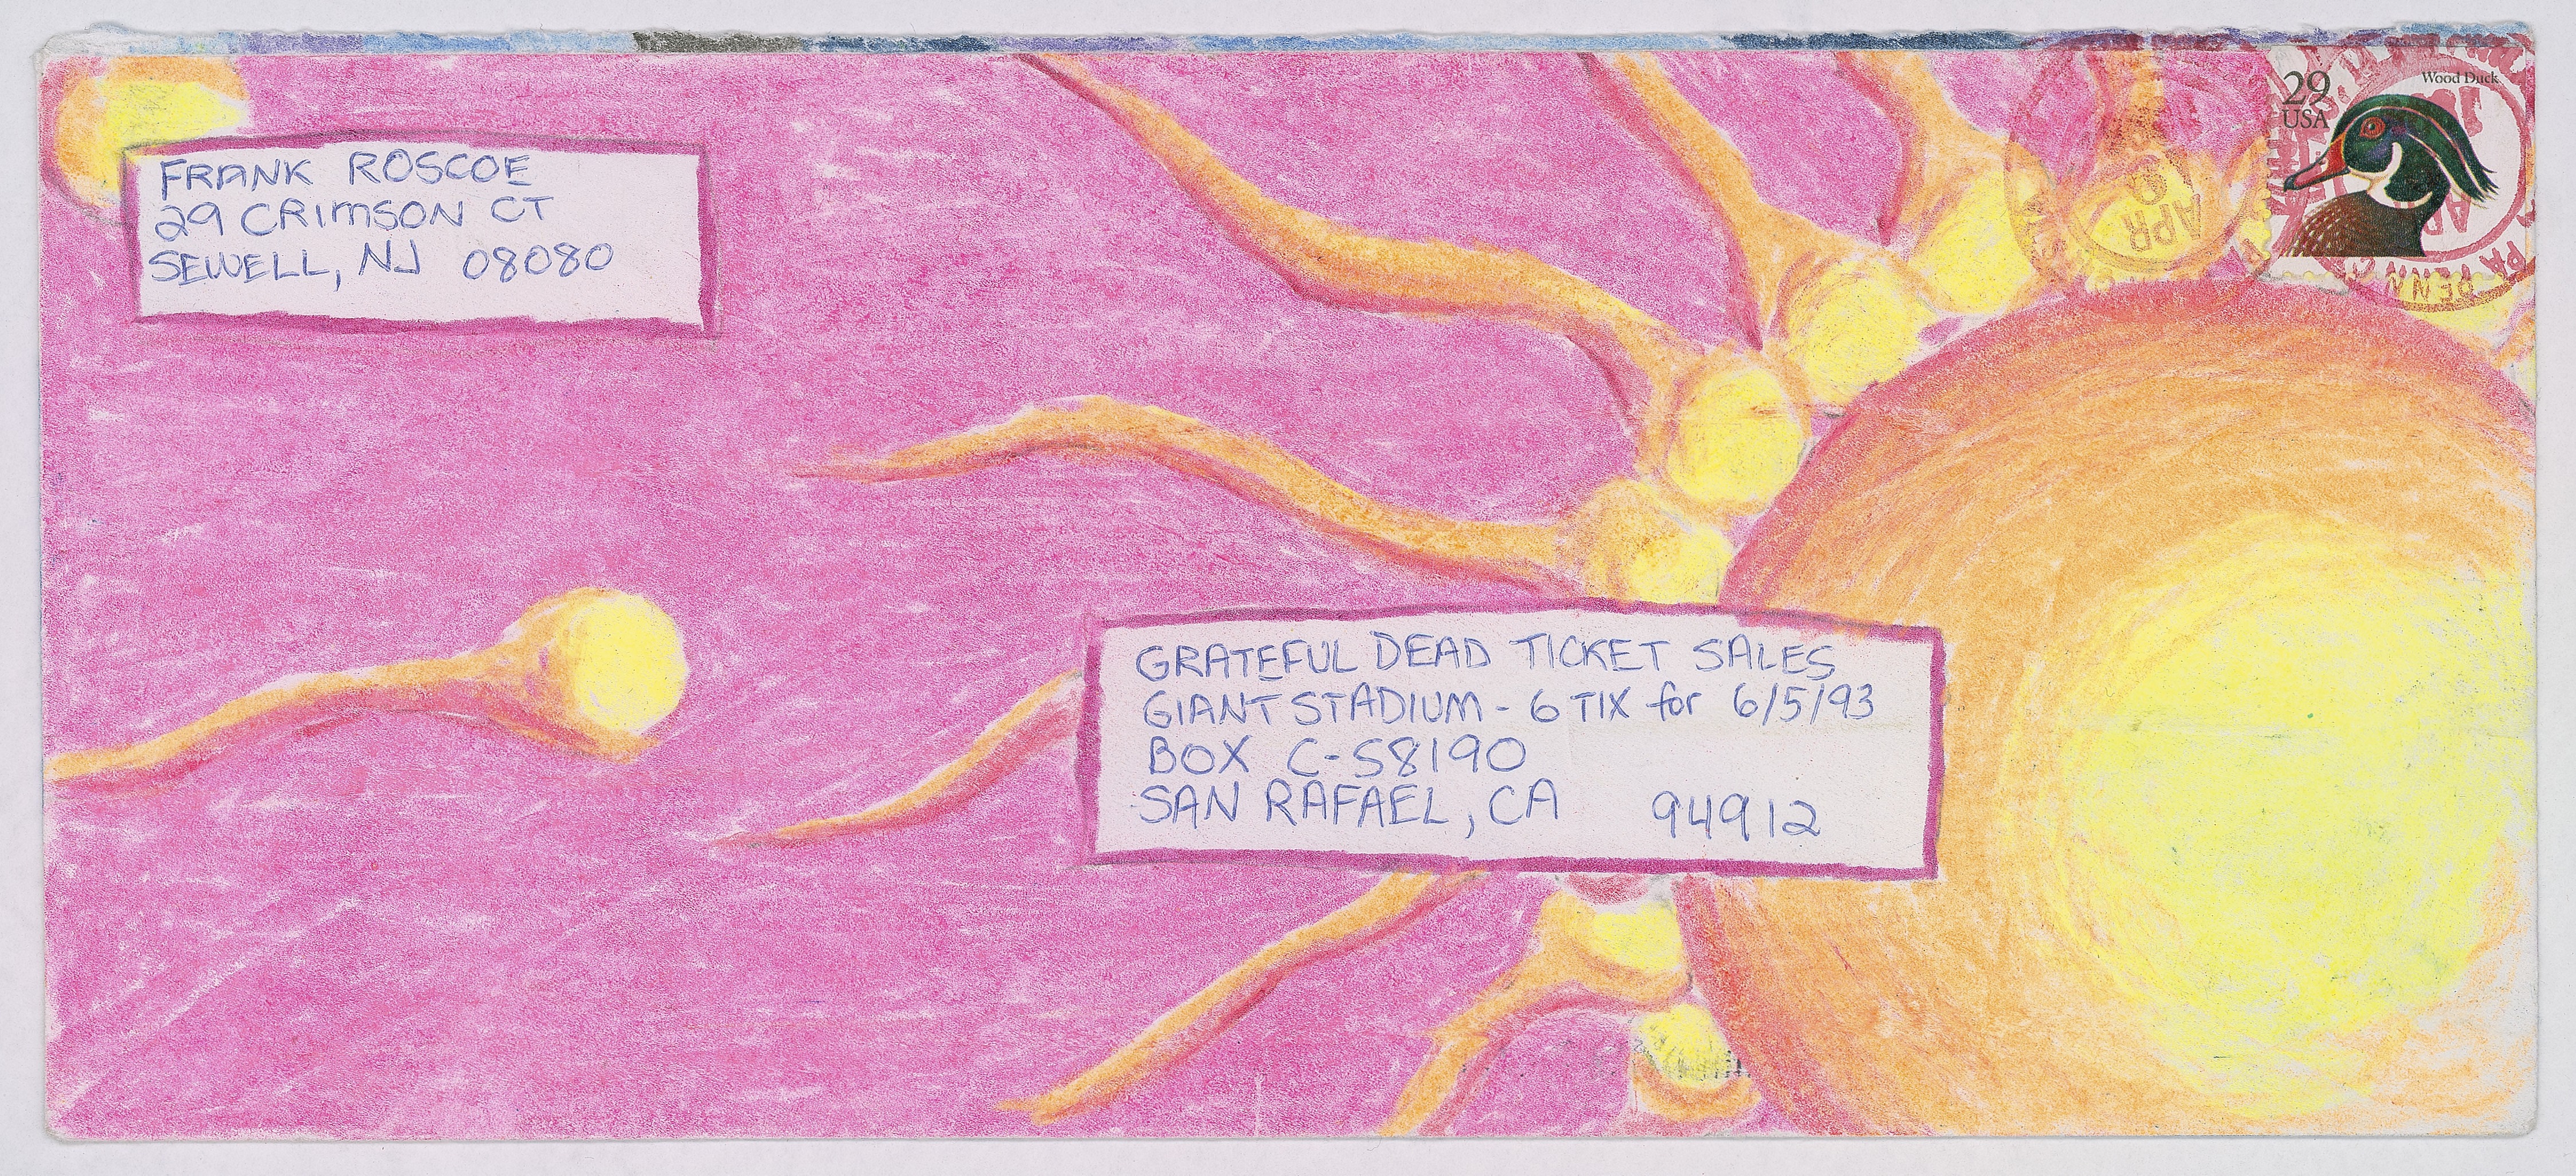 FRANK ROSCOE
29 CRIMSON CT
SEWELL, NJ 08080
29
USA
Wood Duck
APR
9
PENN
GRATEFUL DEAD TICKET SALES
GIANT STADIUM - 6 TIX for 6/5/93
BOX C-58190
SAN RAFAEL, CA 94912